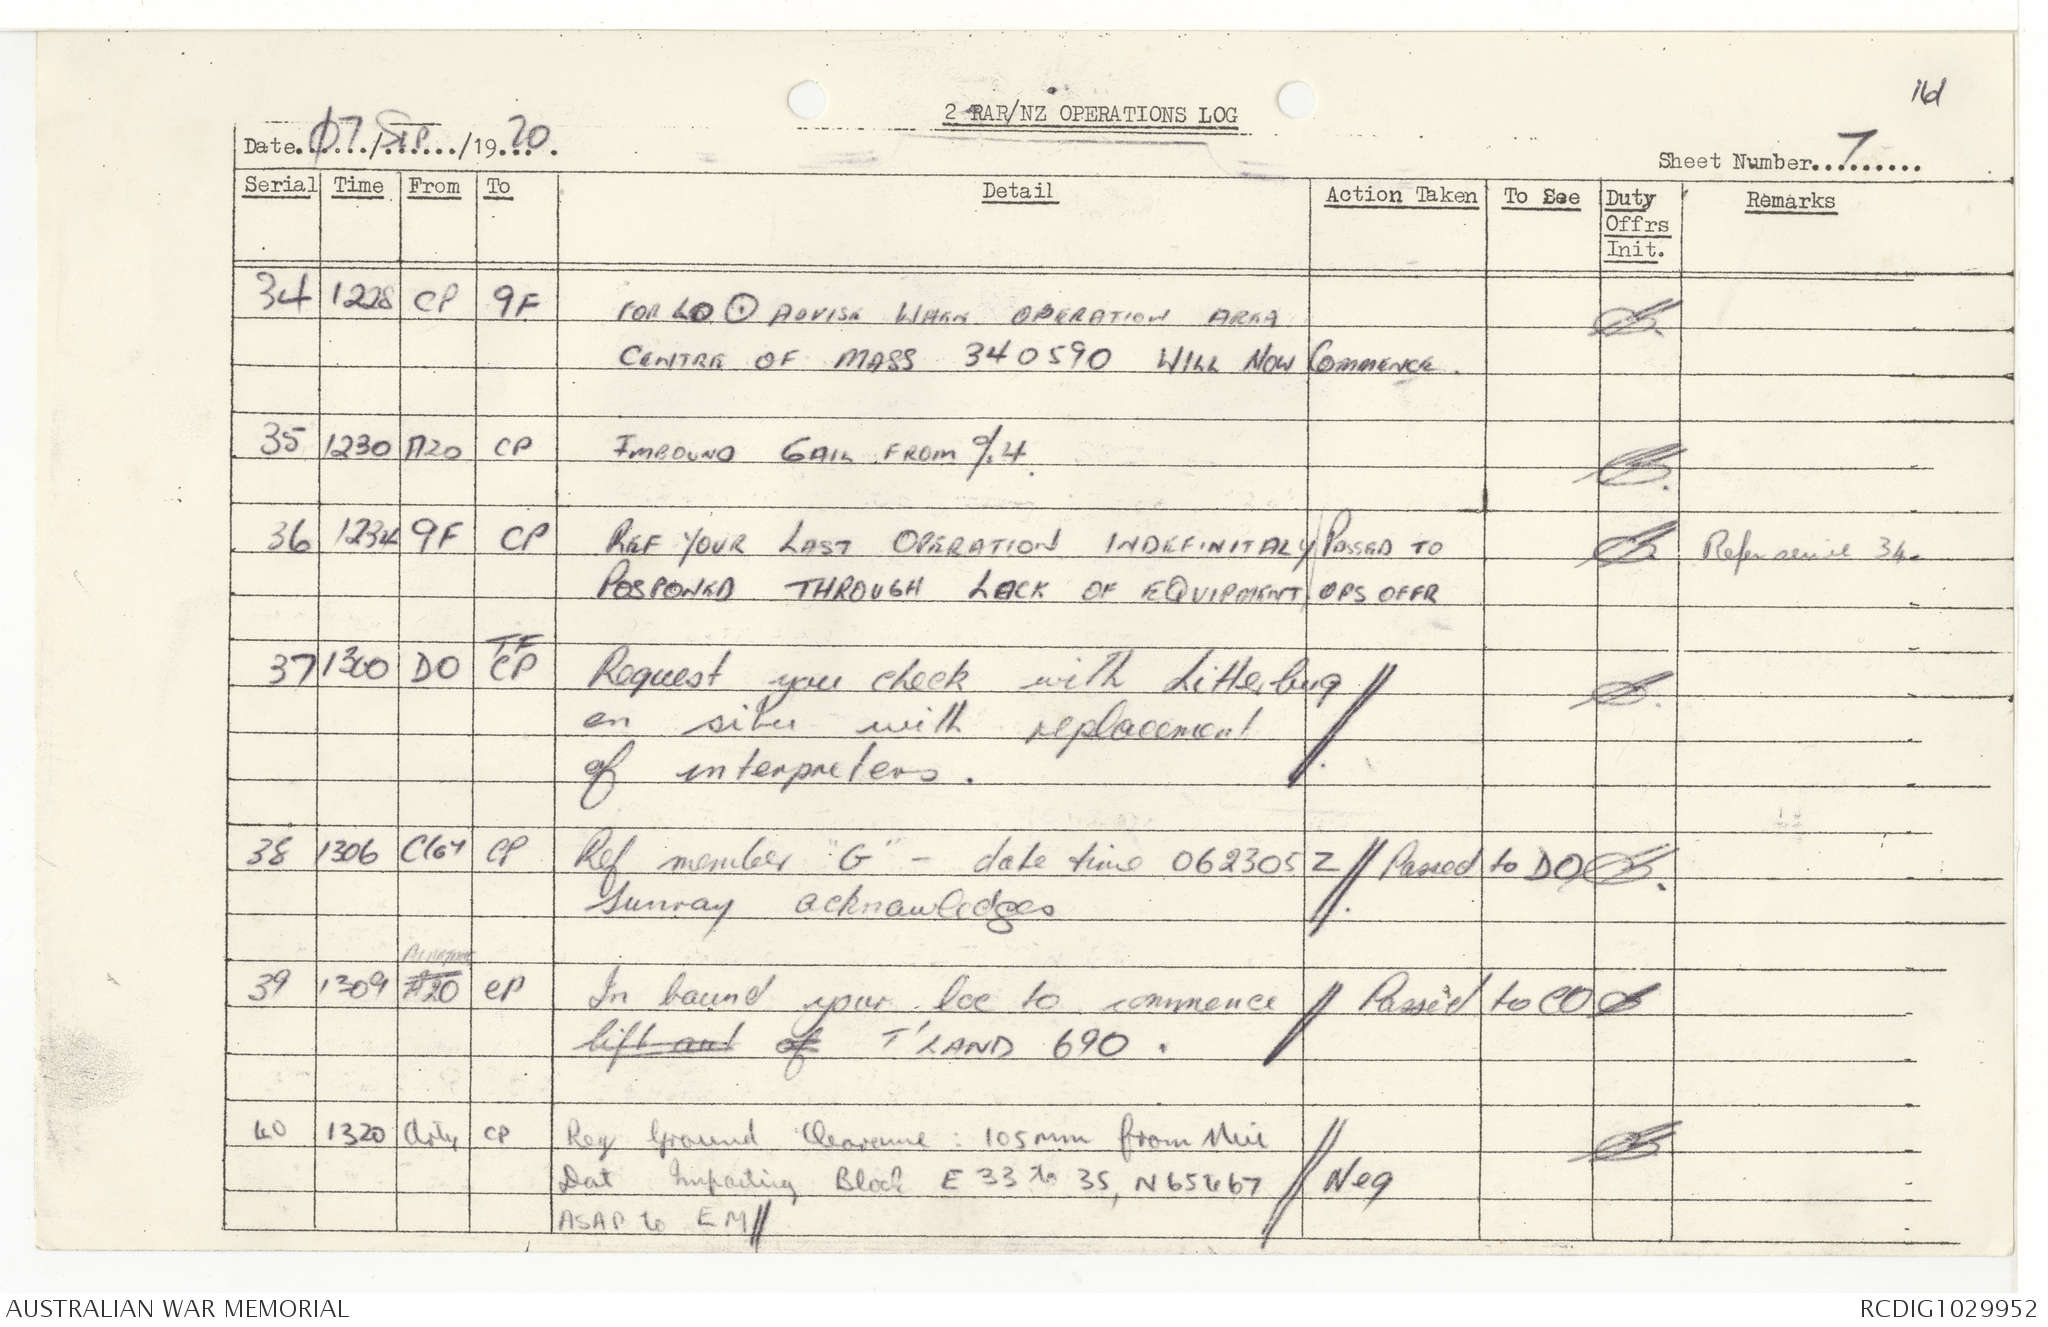 16d
2 RAR/NZ OPERATIONS LOG
Date 07/SEP/1970.
Sheet Number 7
Serial Time From To Detail Action Taken To See Duty Offrs Init. Remarks
34 1228 CP 9F FOR LO ⊙ ADVISE WHEN OPERATION AREA
CENTRE OF MASS 340590 WILL NOW COMMENCE.
35 1230 A20 CP INBOUND GAIL FROM 9/.4.
36 1234 9F CP REF YOUR LAST OPERATION INDEFINITALY PASSED TO Refer serial 34.
POSPONED THROUGH LACK OF EQUIPMENT OPS OFFR
TF
37 1300 DO CP Request you check with Litterbug //
on situ with replacement
of interpreters.
38 1306 CP Ref member "G" - date time 062305Z // Passed to DO
Sunray acknowledges
39 1309 A20 CP In bound your loc to commence // Passed to CO
lift out of T'LAND 690.
40 1320 Arty CP Req Ground Clearance: 105mm from Nui
Dat Impacting Block E 33 to 35, N65 to 67 // Neg
ASAP to EM//
AUSTRALIAN WAR MEMORIAL
RCDIG1029952